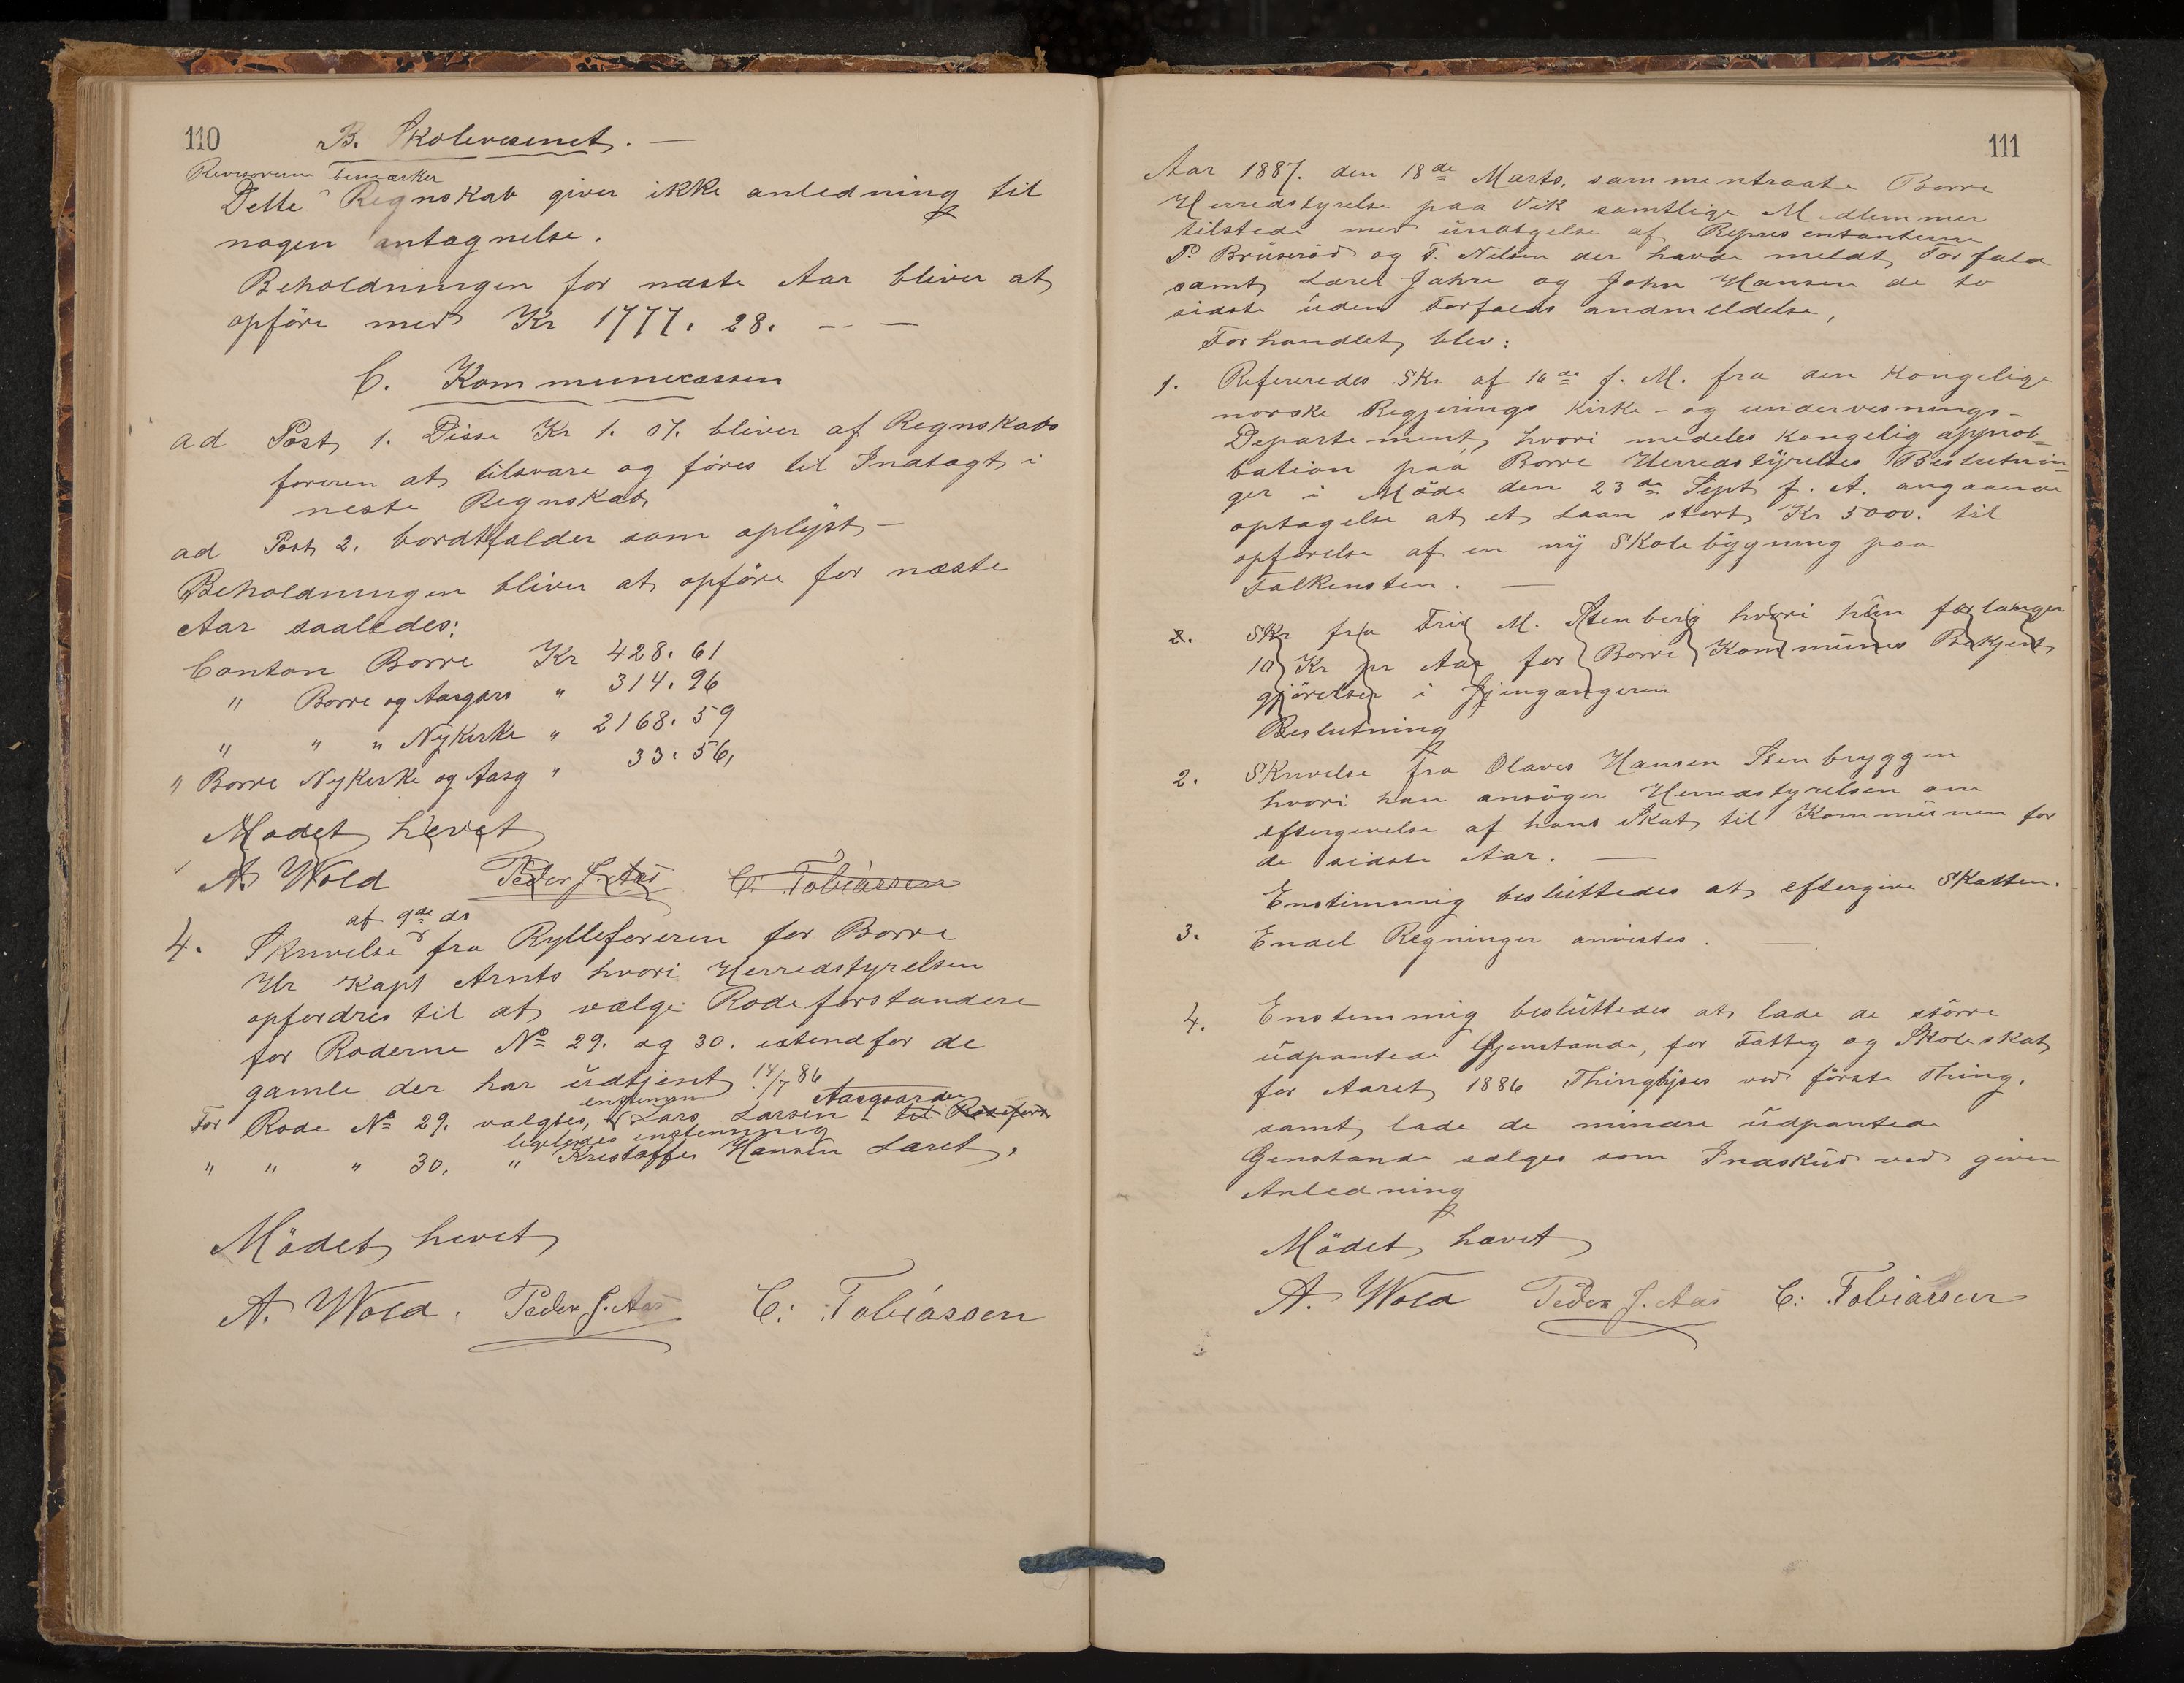 110
B. Skolevesenet. —
Revisorerne bemærker
Dette Regnskab giver ikke anledning til
nogen antagnelse.
Beholdningen for næste Aar bliver at
opföre med Kr 1777. 28. — —
C. Kommunecassen
ad Post 1. Disse Kr 1. 07. bliver af Regnskabs
föreren at tilsvare og föres til Indtægt i
neste Regnskab,
ad Post 2. bordtfalder som oplyst —
Beholdningen bliver at opföre for næste
Aar saaledes:
Conton Borre Kr 428. 61
" Borre og Aasgrs " 314. 96
" " " Nykirke " 2168. 59
" Borre Nykirke og Aasg " 33. 56,
Mødet hevet
A. Wold Peder J. Aas C. Tobiassen
af 9de ds
4. Skrivelse fra Rylleføreren for Borre
Hr Kapt Arnts hvori Herredstyrelsen
opfordres til at vælge Rodeforstandere
for Roderne No 29. og 30. istendfor de
gamle der har udtjent 14/7 86
enstemmi Aasgaarden
For Rode No 29. valgtes, Lars Larsen - til Rodeforst
ligeledes enstemmig
" " " 30. " Kristoffer Hansen Læret.
Mödet hevet
A. Wold. Peder J. Aas C: Tobiassen
111
Aar 1887. den 18de Marts, sammentraate Borre
Herredstyrelse paa Vik samtlige Medlemmer
tilstede med undtgelse af Representanterne
P. Bruseröd og T. Nilsen der havde meldt Forfald
samt Lars Jahre og John Hansen de to
sidste uden Forfalds andmeldelse,
Forhandlet blev:
1. Refereredes Skr af 16de f. M. fra den Kongelige
norske Regjerings Kirke- og undervesnings-
Departement, hvori medeles Kongelig approb-
bation paa Borre Herredstyrelses Beslutnin-
ger i Möde den 23de Sept f. A. angaaende
optagelse at et Laan stort Kr 5000. til
opförelse af en ny Skolebygning paa
Falkensten. —
2. Skr fra Frir M. Stenberg hvori han forlanger
10 Kr pr Aar for Borre Kommunes Bekjent
gjörelser i Gjengangeren
Beslutning
2. Skrivelse fra Olaves Hansen Stenbryggen
hvori han ansöger Herredstyrelsen om
eftergivelse af hans Skat til Kommunen for
de sidste Aar. —
Enstimmig besluttedes at eftergive Skatten.
3. Endel Regninger anvistes.
4. Enstemmig besluttedes at lade de större
udpantede Gjenstande, for Fattig og Skoleskat
for Aaret 1886 Thinglyses ved förste Thing,
samt lade de mindre udpantede
Genstande sælges som Indskud ved given
Anledning
Mödet hævet
A. Wold Peder J. Aas C: Tobiassen